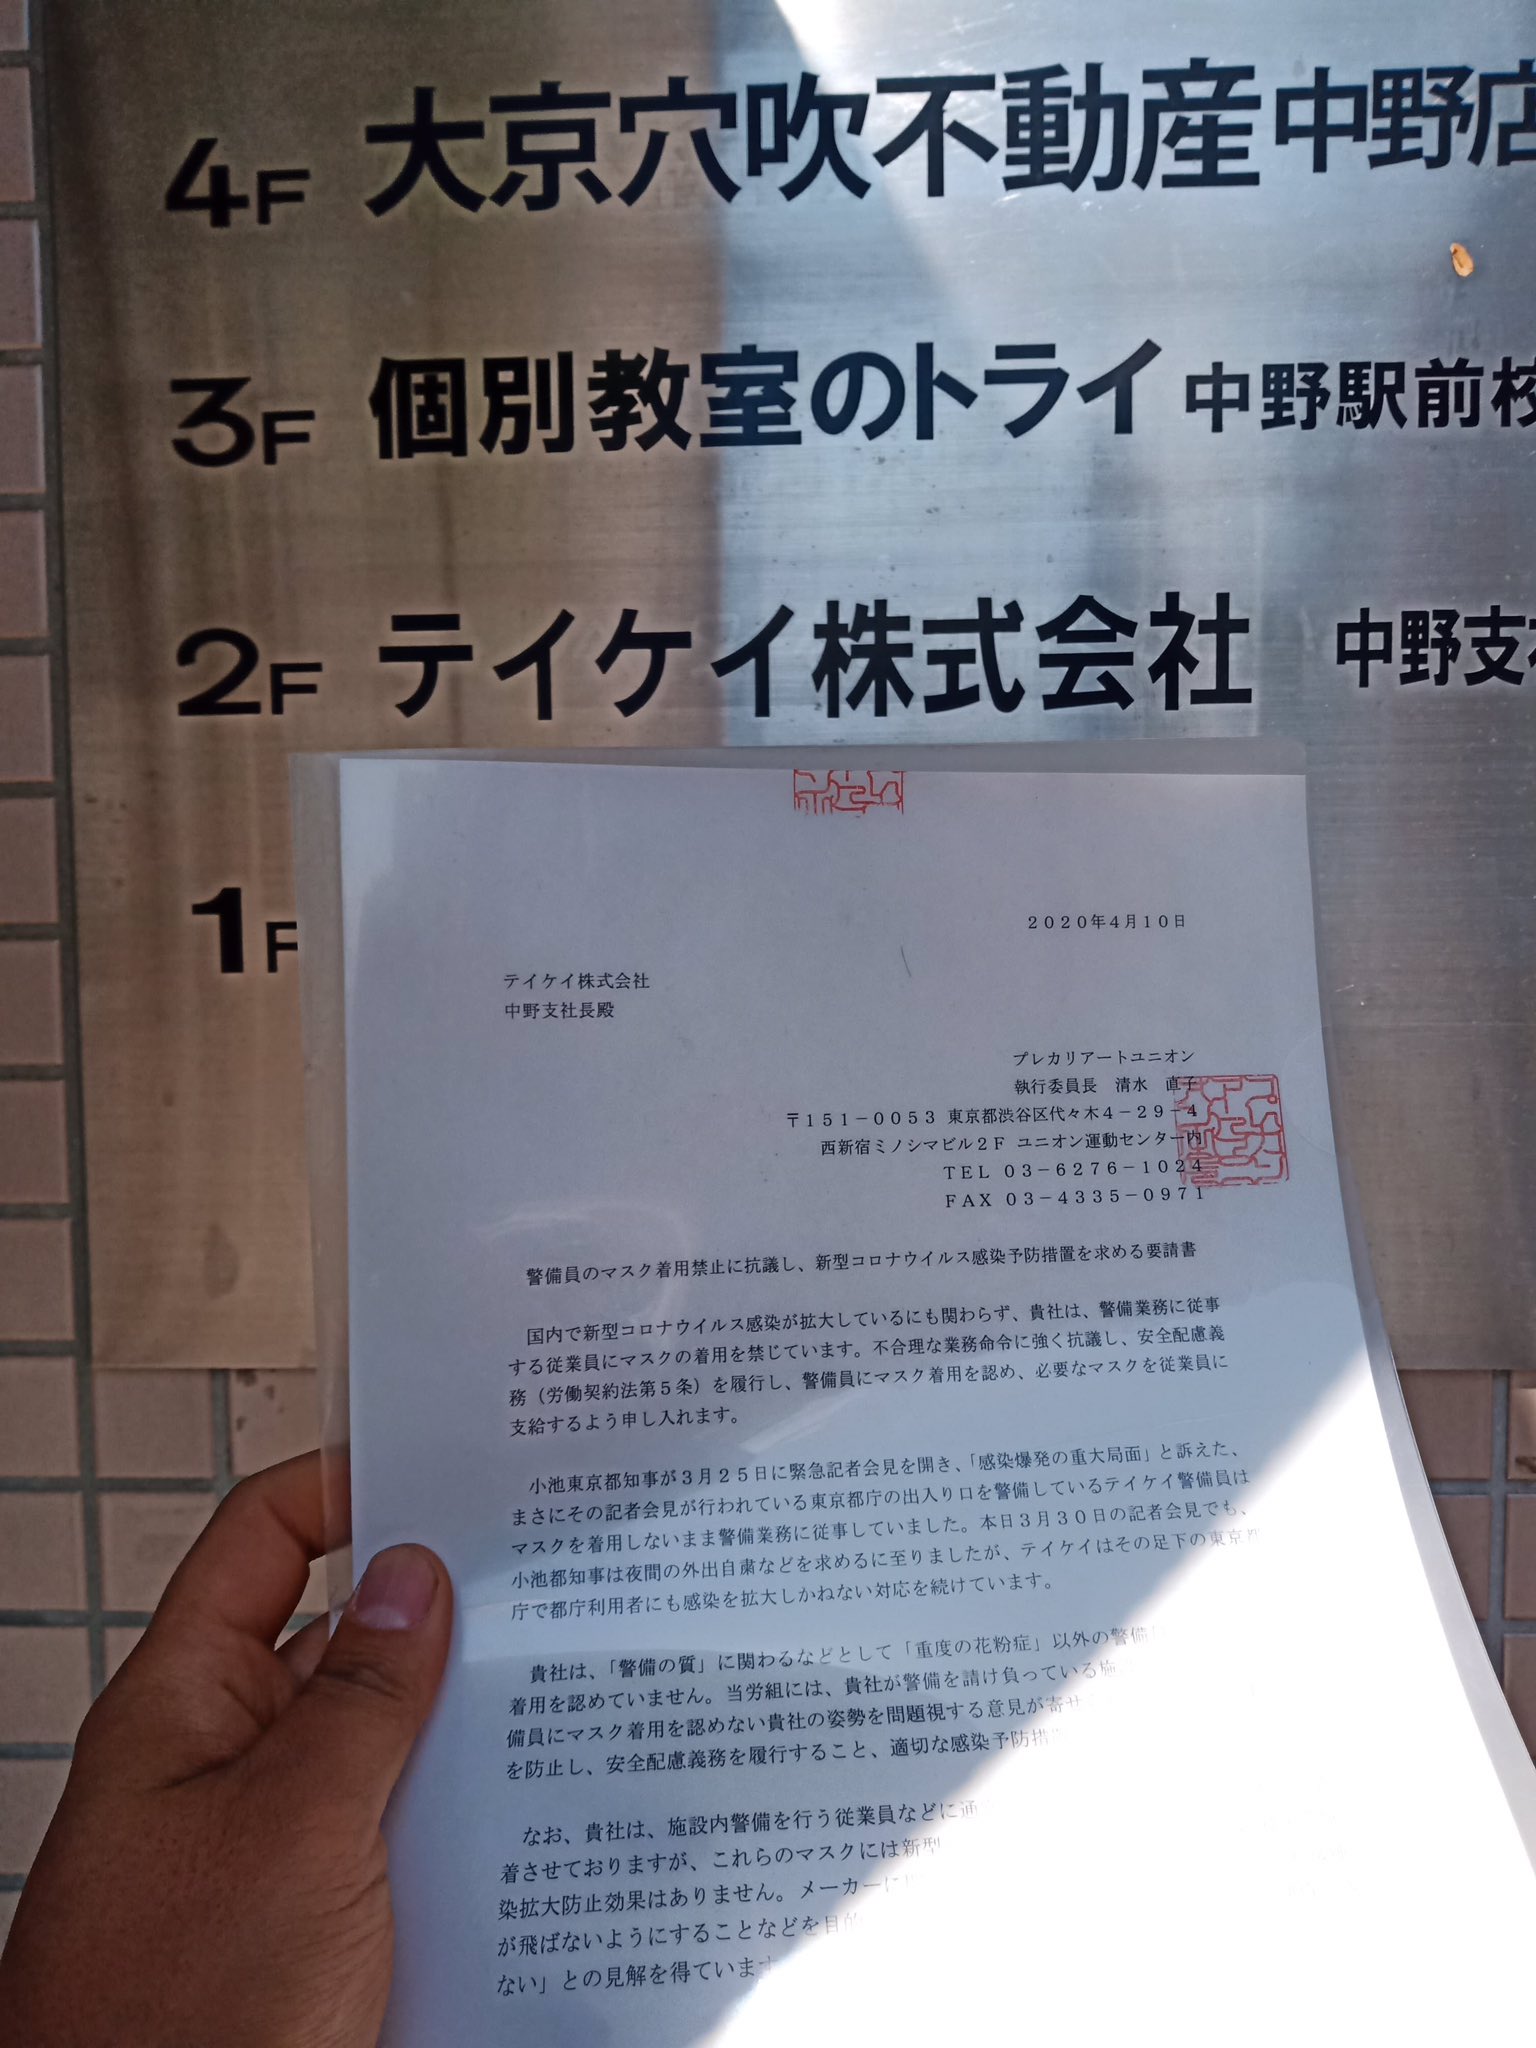 4F 大京穴吹不動産 中野店
3F 個別教室のトライ 中野駅前校
2F テイケイ株式会社 中野支
1F
2020年4月10日
テイケイ株式会社
中野支社長殿
プレカリアートユニオン
執行委員長 清水 直子
〒151-0053 東京都渋谷区代々木4-29-4
西新宿ミノシマビル2F ユニオン運動センター内
TEL 03-6276-1024
FAX 03-4335-0971
警備員のマスク着用禁止に抗議し、新型コロナウイルス感染予防措置を求める要請書
国内で新型コロナウイルス感染が拡大しているにも関わらず、貴社は、警備業務に従事
する従業員にマスクの着用を禁じています。不合理な業務命令に強く抗議し、安全配慮義
務（労働契約法第5条）を履行し、警備員にマスク着用を認め、必要なマスクを従業員に
支給するよう申し入れます。
小池東京都知事が3月25日に緊急記者会見を開き、「感染爆発の重大局面」と訴えた、
まさにその記者会見が行われている東京都庁の出入り口を警備しているテイケイ警備員は
マスクを着用しないまま警備業務に従事していました。本日3月30日の記者会見でも、
小池都知事は夜間の外出自粛などを求めるに至りましたが、テイケイはその足下の東京都
庁で都庁利用者にも感染を拡大しかねない対応を続けています。
貴社は、「警備の質」に関わるなどとして「重度の花粉症」以外の警備
着用を認めていません。当労組には、貴社が警備を請け負っている施
備員にマスク着用を認めない貴社の姿勢を問題視する意見が寄せ
を防止し、安全配慮義務を履行すること、適切な感染予防措
なお、貴社は、施設内警備を行う従業員などに通
着させておりますが、これらのマスクには新型
染拡大防止効果はありません。メーカーに
が飛ばないようにすることなどを目的
ない」との見解を得ています